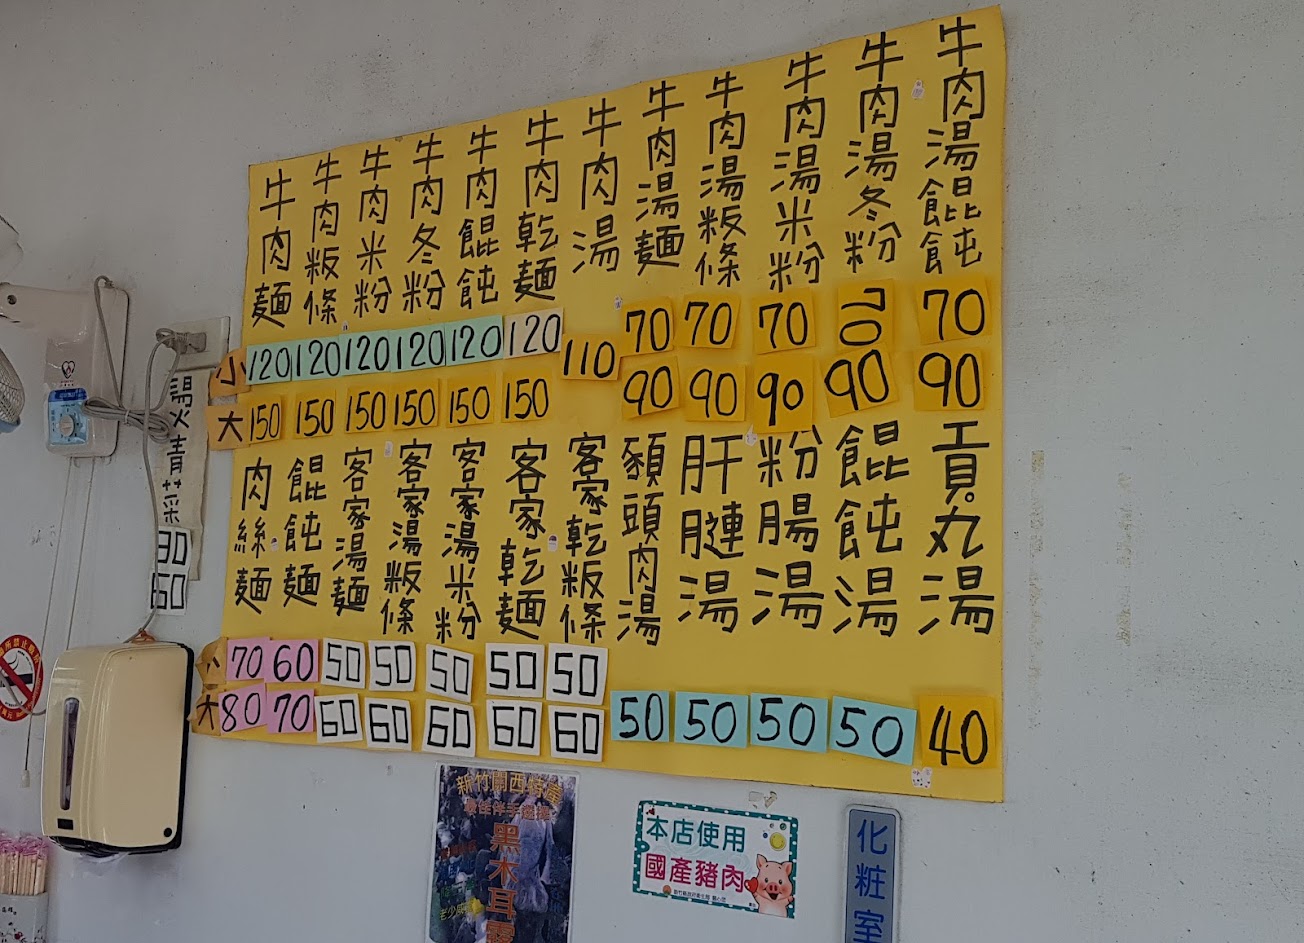 牛肉湯餛飩
牛肉湯冬粉
牛肉湯米粉
牛肉湯粄條
牛肉湯麵
牛肉湯
牛肉乾麵
牛肉餛飩
牛肉冬粉
牛肉米粉
牛肉粄條
牛肉麵
小 120 120 120 120 120 120 110 70 70 70 70 70
大 150 150 150 150 150 150 90 90 90 90 90
貢丸湯
餛飩湯
粉腸湯
肝腱湯
頭肉湯
客家乾粄條
客家乾麵
客家湯米粉
客家湯粄條
客家湯麵
餛飩麵
肉絲麵
小 70 60 50 50 50 50 50
大 80 70 60 60 60 60 60 50 50 50 50 40
燙青菜
30
60
新竹關西特產
最佳伴手禮
黑木耳露
本店使用
國產豬肉
化粧室